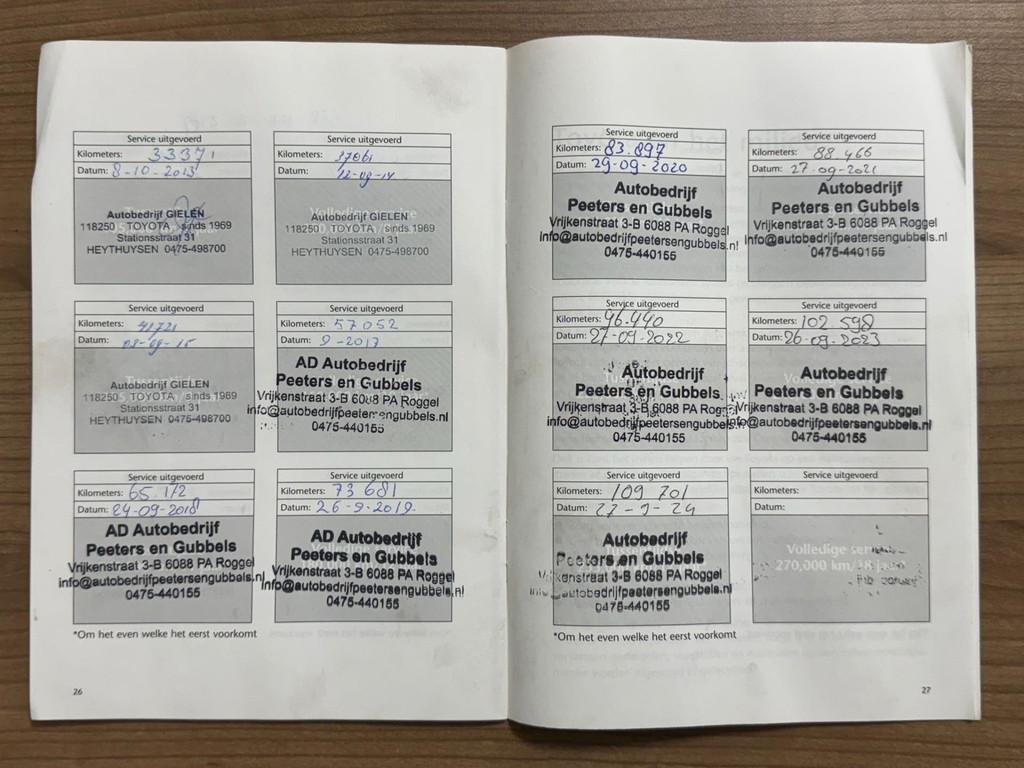 Service uitgevoerd
Kilometers: 33371
Datum: 8-10-2013
Autobedrijf GIELEN
118250 TOYOTA sinds 1969
Stationsstraat 31
HEYTHUYSEN 0475-498700
Service uitgevoerd
Kilometers: 37061
Datum: 12-09-14
Autobedrijf GIELEN
118250 TOYOTA sinds 1969
Stationsstraat 31
HEYTHUYSEN 0475-498700
Service uitgevoerd
Kilometers: 41721
Datum: 03-09-15
Autobedrijf GIELEN
118250 TOYOTA sinds 1969
Stationsstraat 31
HEYTHUYSEN 0475-498700
Service uitgevoerd
Kilometers: 57052
Datum: 9-2017
AD Autobedrijf
Peeters en Gubbels
Vrijkenstraat 3-B 6088 PA Roggel
info@autobedrijfpeetersengubbels.nl
0475-440155
Service uitgevoerd
Kilometers: 65 172
Datum: 24-09-2018
AD Autobedrijf
Peeters en Gubbels
Vrijkenstraat 3-B 6088 PA Roggel
info@autobedrijfpeetersengubbels.nl
0475-440155
Service uitgevoerd
Kilometers: 73 681
Datum: 26-9-2019.
AD Autobedrijf
Peeters en Gubbels
Vrijkenstraat 3-B 6088 PA Roggel
info@autobedrijfpeetersengubbels.nl
0475-440155
*Om het even welke het eerst voorkomt
26
Service uitgevoerd
Kilometers: 83.897
Datum: 29-09-2020
Autobedrijf
Peeters en Gubbels
Vrijkenstraat 3-B 6088 PA Roggel
info@autobedrijfpeetersengubbels.nl
0475-440155
Service uitgevoerd
Kilometers: 88 466
Datum: 27-09-2021
Autobedrijf
Peeters en Gubbels
Vrijkenstraat 3-B 6088 PA Roggel
info@autobedrijfpeetersengubbels.nl
0475-440155
Service uitgevoerd
Kilometers: 96.440
Datum: 27-09-2022
Autobedrijf
Peeters en Gubbels
Vrijkenstraat 3-B 6088 PA Roggel
info@autobedrijfpeetersengubbels.nl
0475-440155
Service uitgevoerd
Kilometers: 102 598
Datum: 26-09-2023
Autobedrijf
Peeters en Gubbels
Vrijkenstraat 3-B 6088 PA Roggel
info@autobedrijfpeetersengubbels.nl
0475-440155
Service uitgevoerd
Kilometers: 109 701
Datum: 27-9-24
Autobedrijf
Peeters en Gubbels
Vrijkenstraat 3-B 6088 PA Roggel
autobedrijfpeetersengubbels.nl
0475-440155
Service uitgevoerd
Kilometers:
Datum:
Volledige service
270,000 km/18 jaar
*Om het even welke het eerst voorkomt
27